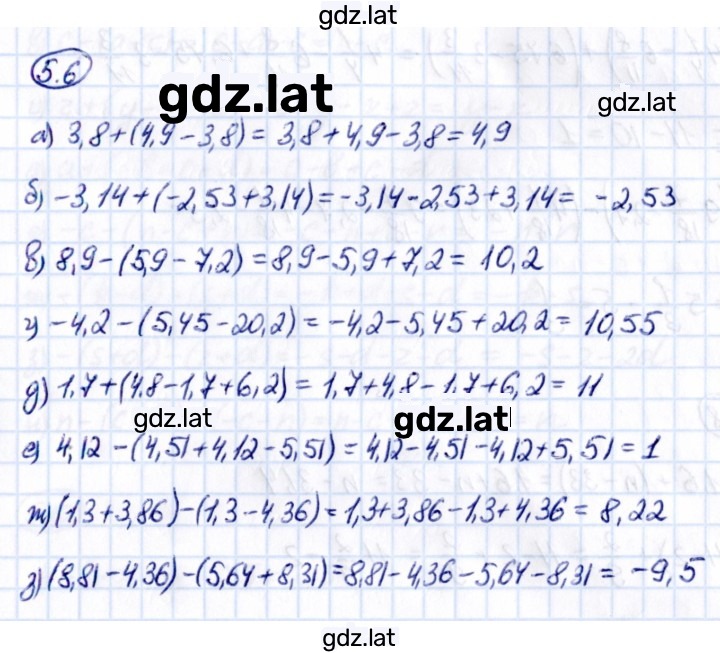 gdz.lat
5.6
gdz.lat
gdz.lat
а) 3,8+(4,9-3,8)= 3,8+4,9-3,8=4,9
б) -3,14+(-2,53+3,14)=-3,14-2,53+3,14= -2,53
в) 8,9-(5,9-7,2)=8,9-5,9+7,2= 10,2
г) -4,2-(5,45-20,2)= -4,2-5,45+20,2= 10,55
д) 1,7+(4,8-1,7+6,2)= 1,7+4,8-1,7+6,2=11
gdz.lat
gdz.lat
е) 4,12-(4,51+4,12-5,51)= 4,12-4,51-4,12+5,51=1
ж) (1,3+3,86)-(1,3-4,36)=1,3+3,86-1,3+4,36= 8,22
з) (8,81-4,36)-(5,64+8,31)=8,81-4,36-5,64-8,31= -9,5
gdz.lat